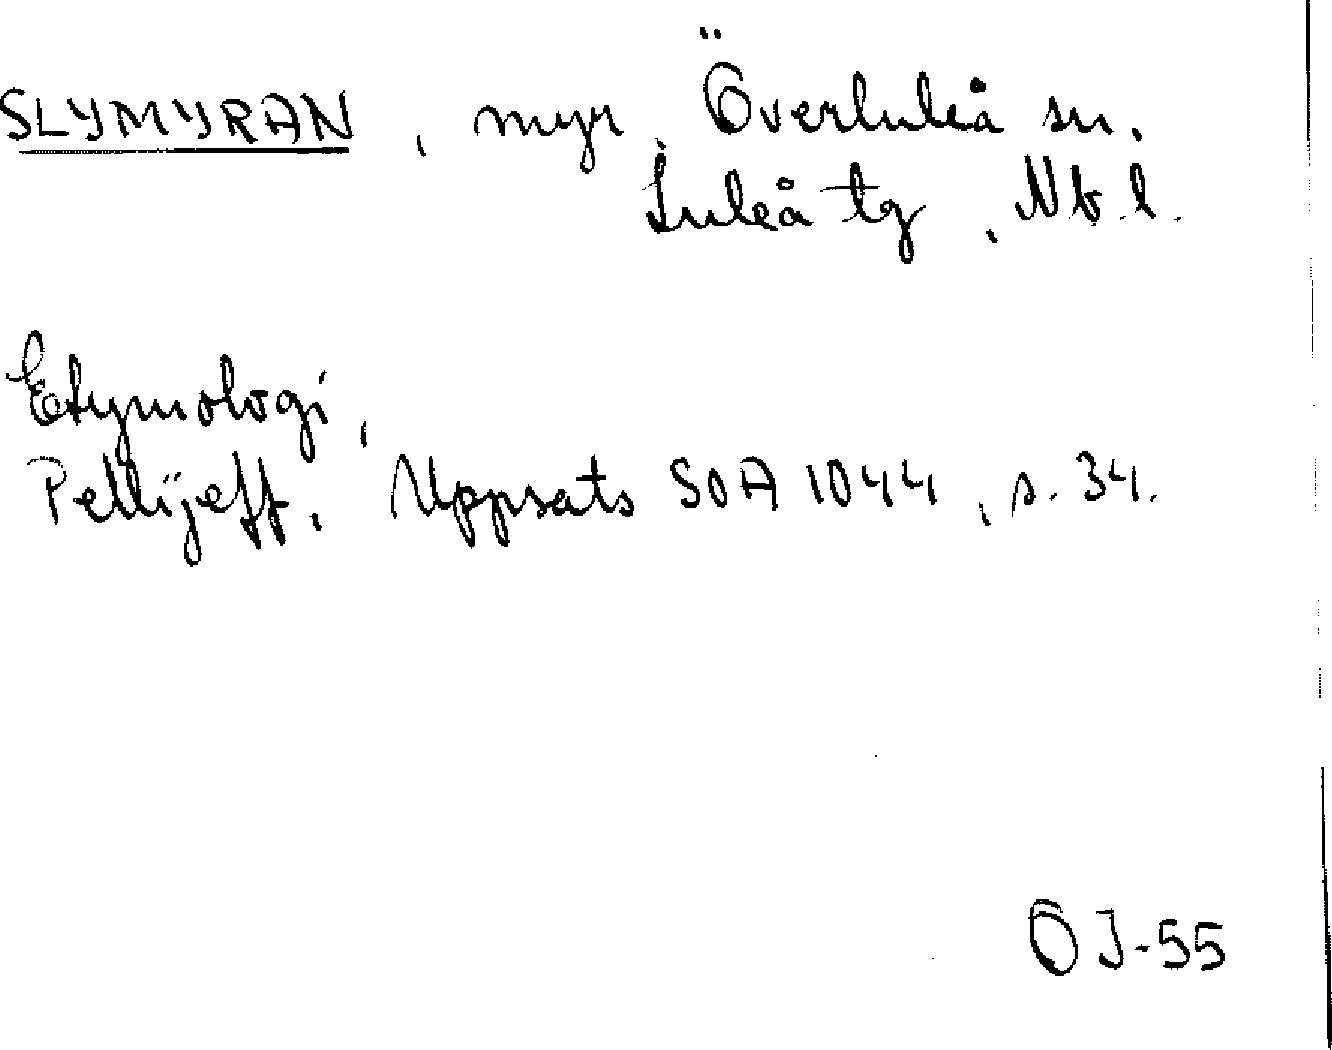 SLYMYRAN, myr, Överluleå sn.
Luleå tg, Nb. l.
Etymologi,
Pellijeff, Uppsats SOA 1044, s. 34.
OJ-55